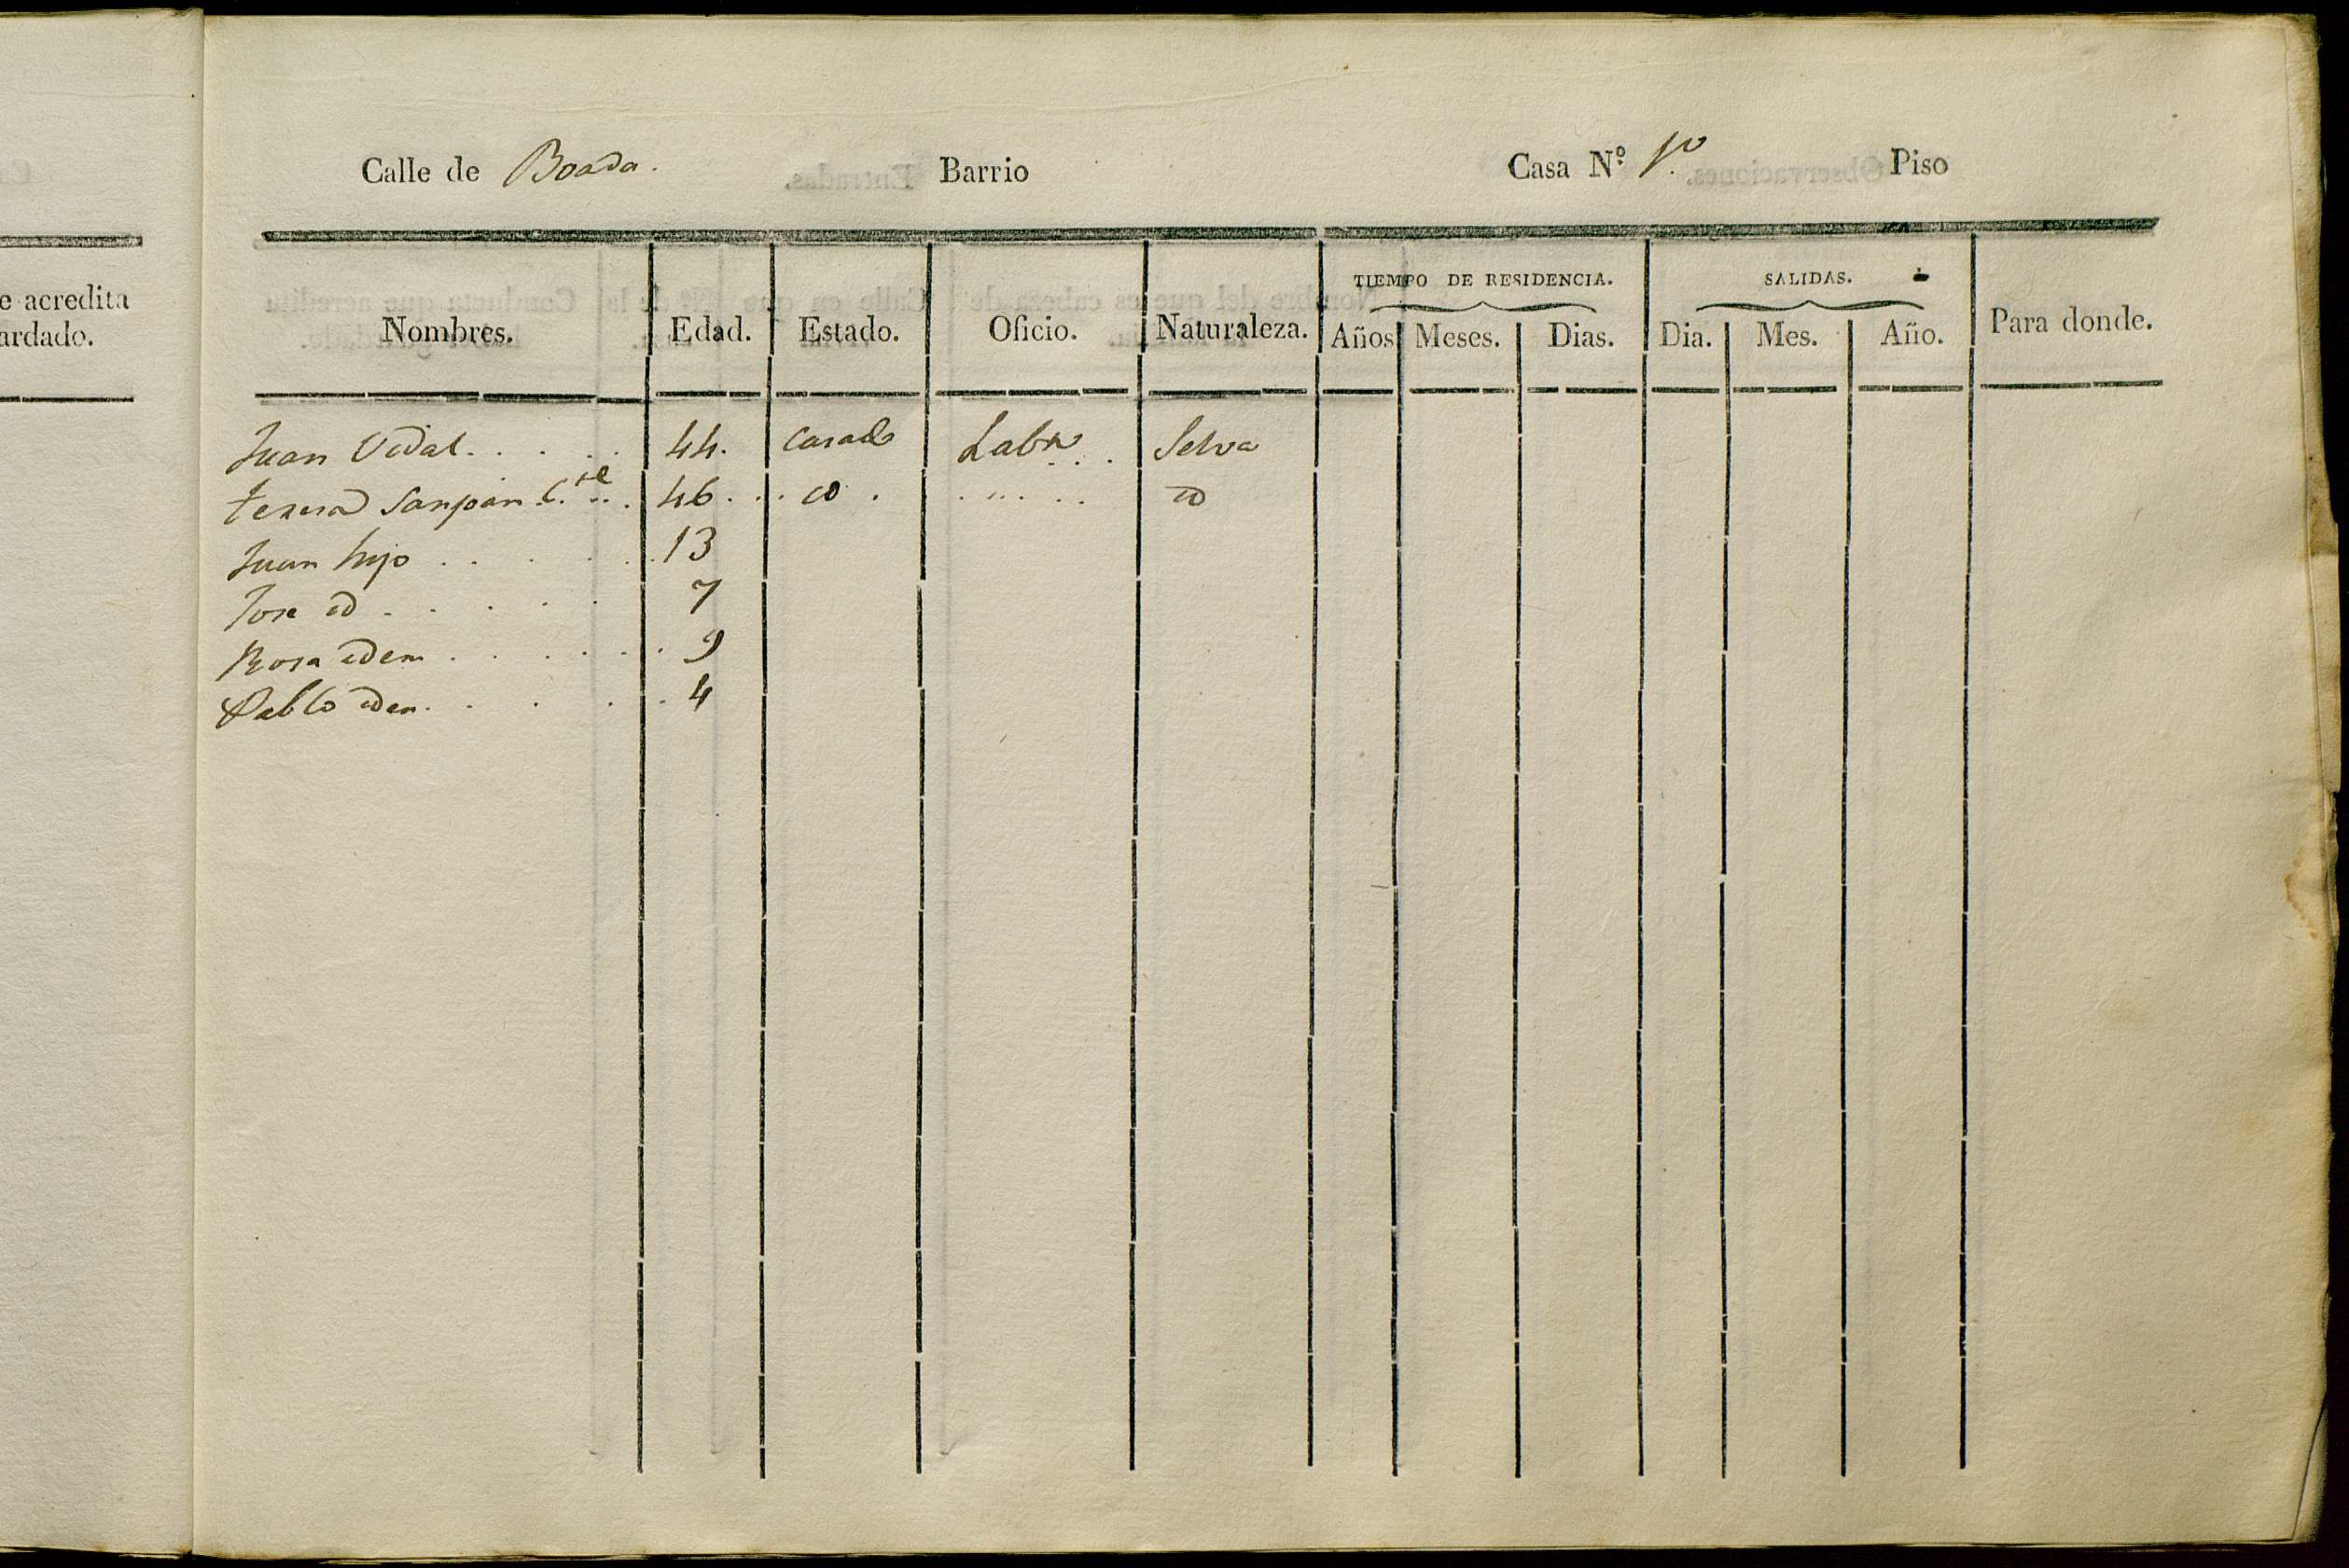 e acredita
ardado.
Calle de Boada. Barrio Casa N.º 1º Piso
TIEMPO DE RESIDENCIA. SALIDAS.
Nombres. Edad. Estado. Oficio. Naturaleza. Años Meses. Dias. Dia. Mes. Año. Para donde.
Juan Vidal. 44. Casado Labr Selva
Teresa 46. id. id
Juan hijo 13
Jose id 7
Rosa idem 9
Pablo idem. 4